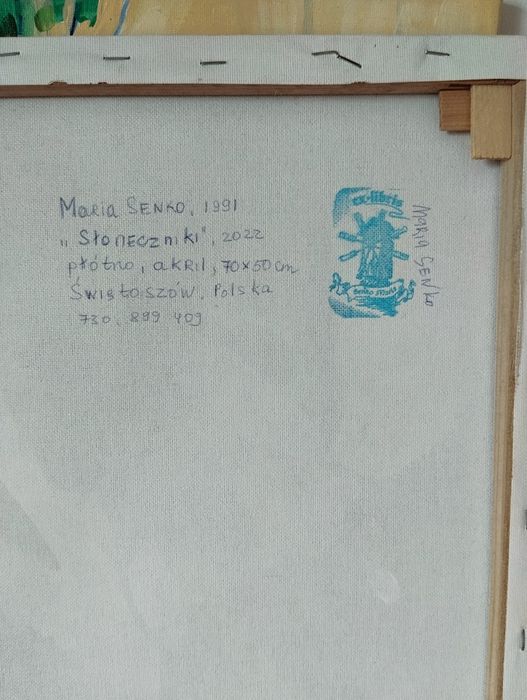 Maria SENKO, 1991
"Słoneczniki", 2022
płótno, akril, 70x50cm
Świętoszów, Polska
730 899 409
ex-libris
Maria SENKO